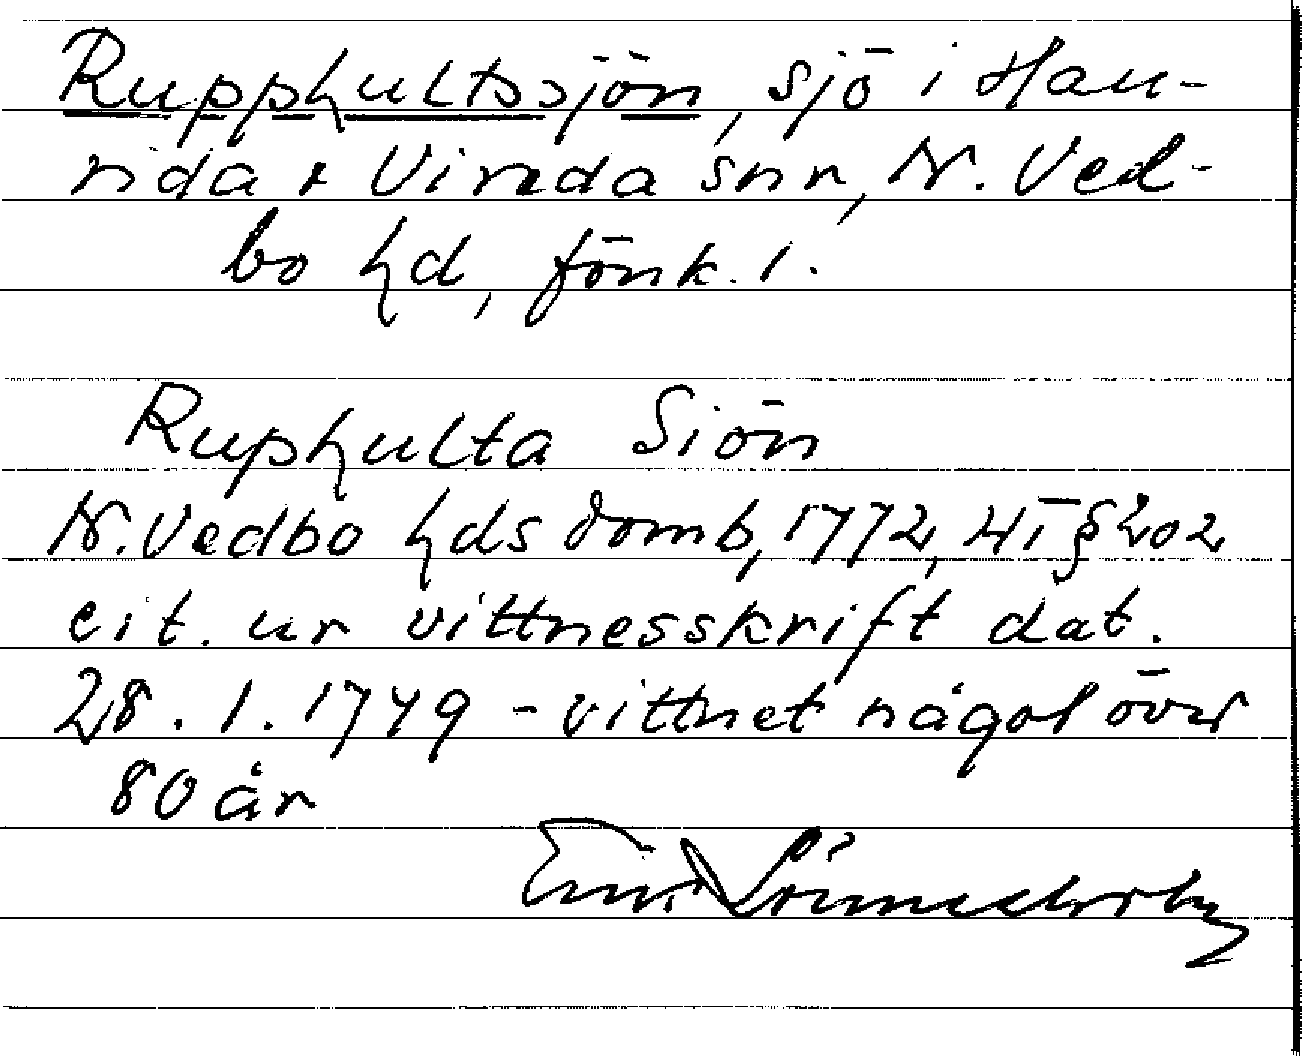 Rupphultssjön, sjö i Hau-
rida & Vireda snr, N. Ved-
bo hd, Jönk. l.
Ruphulta Siön
N. Vedbo hds domb, 1772, HT § 202
cit. ur vittnesskrift dat.
28. 1. 1749 - vittnet något över
80 år